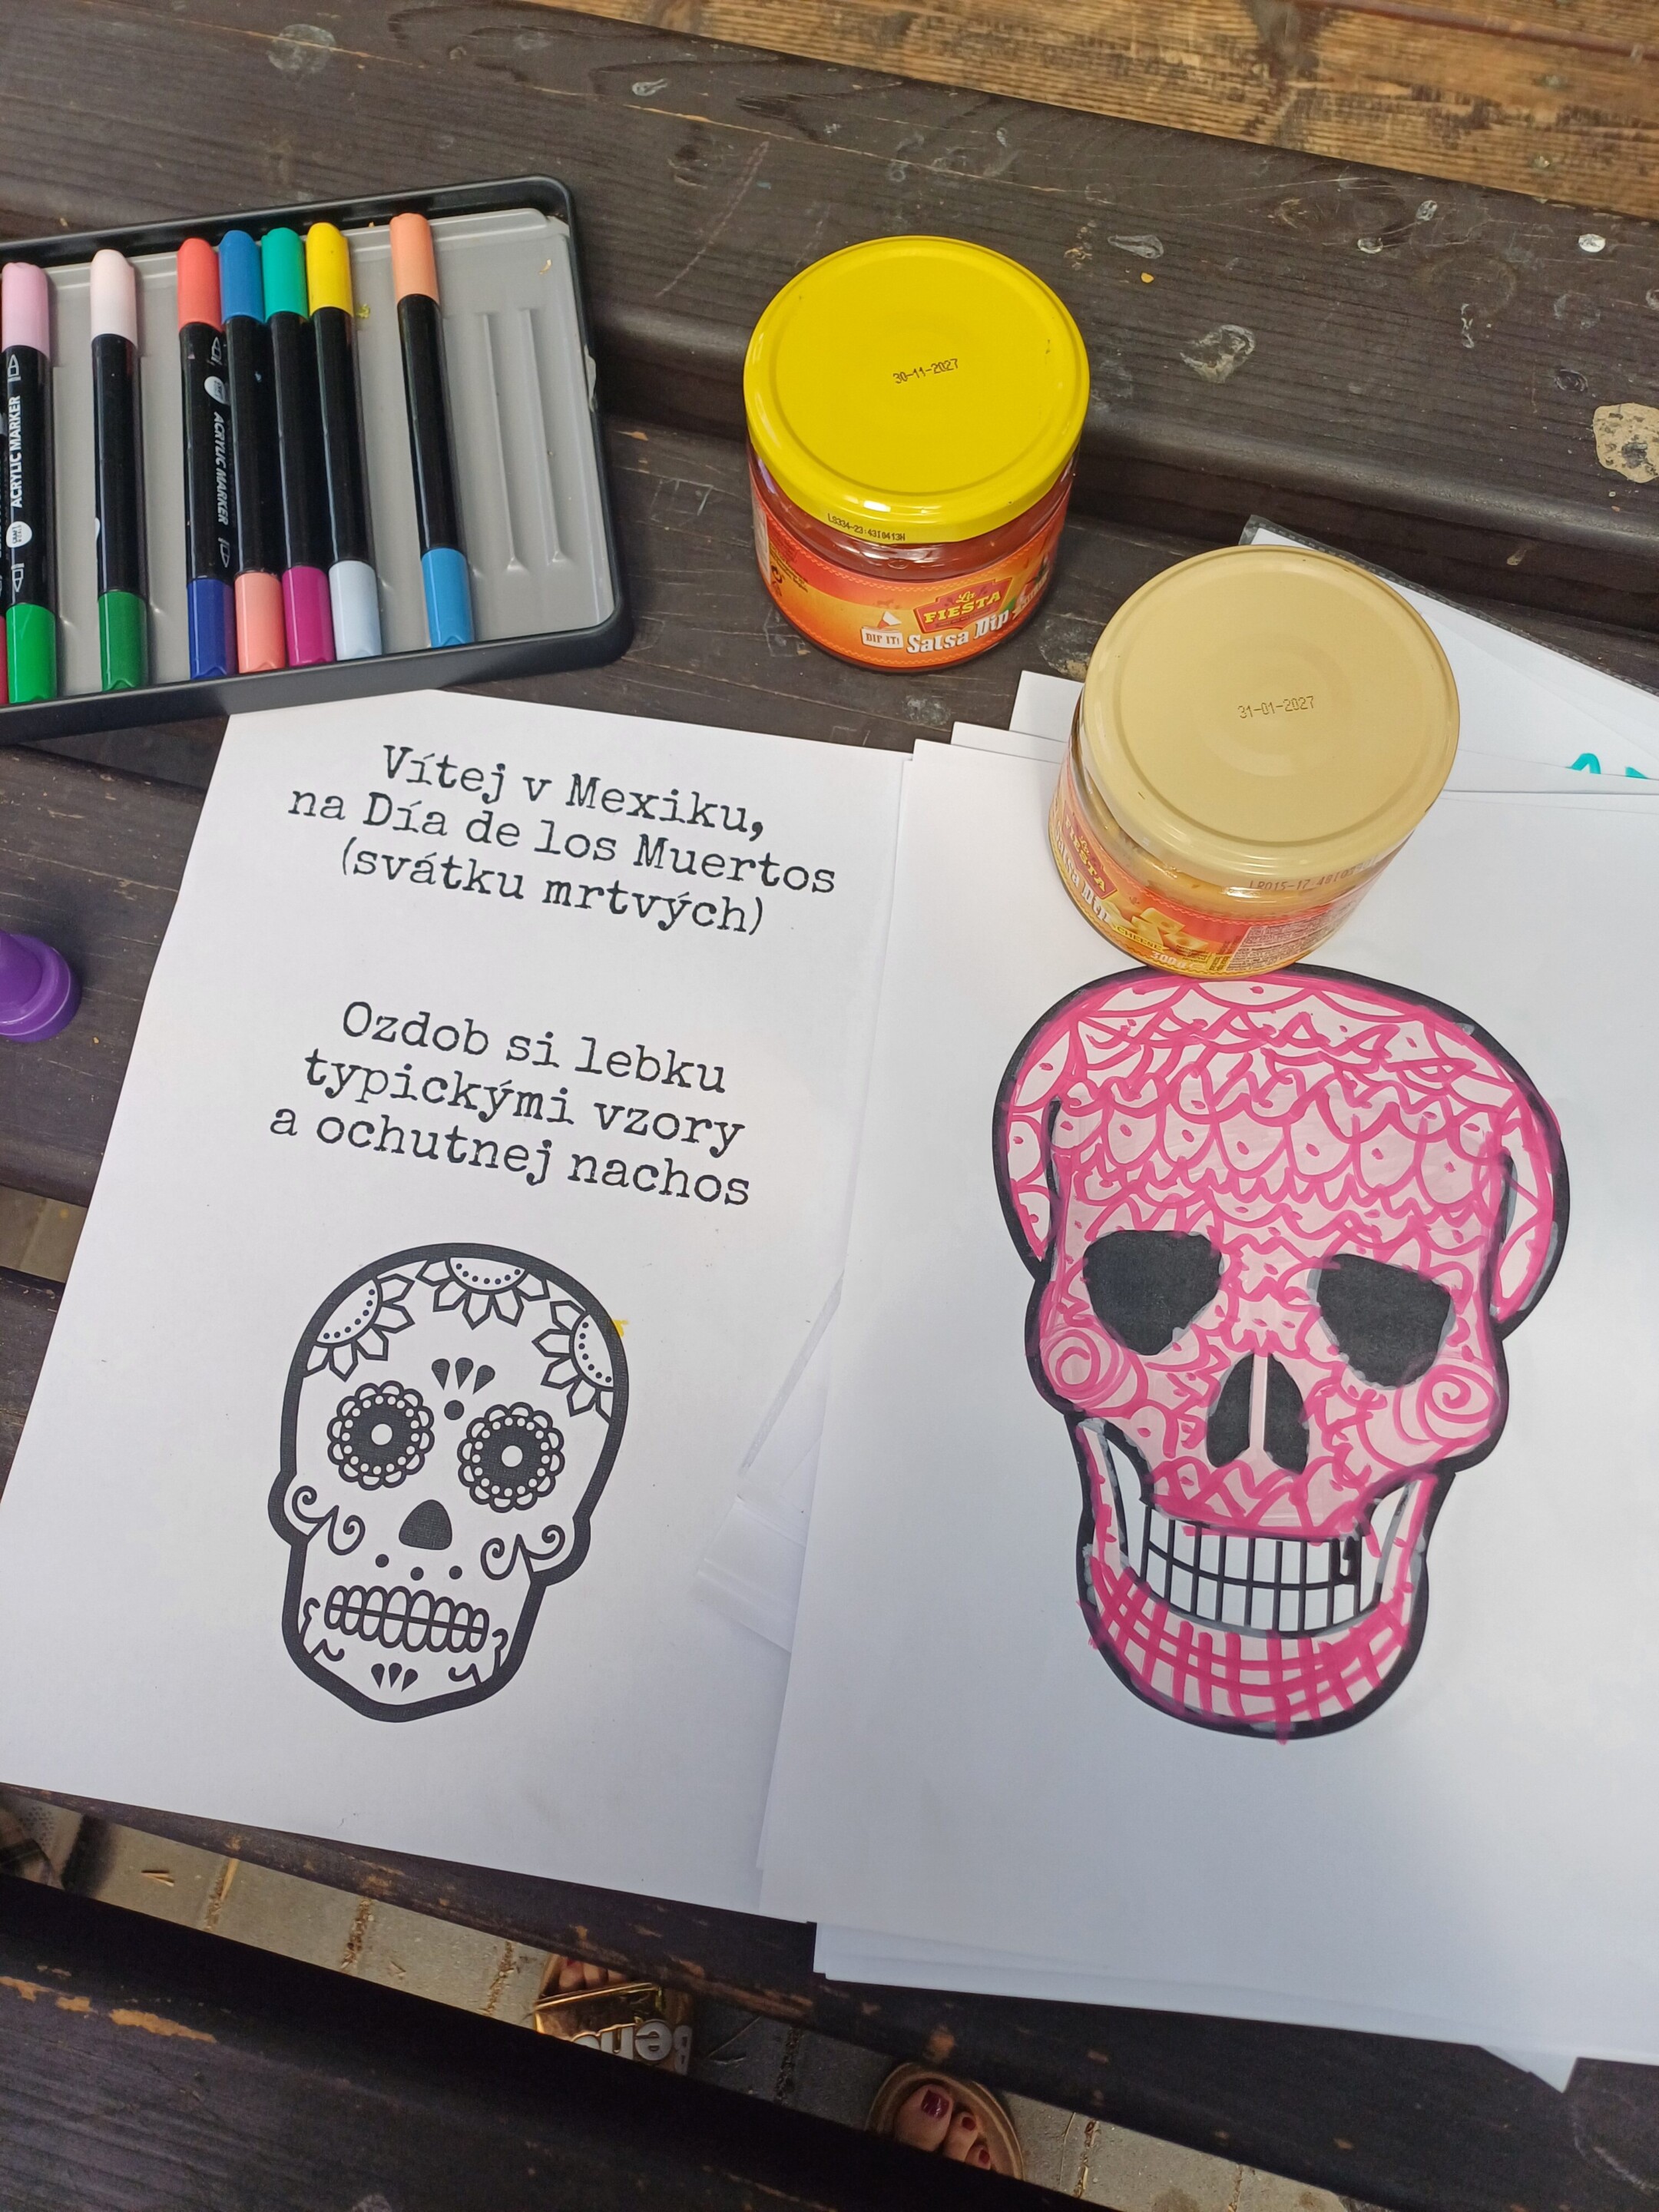 ACRYLIC MARKER
ACRYLIC MARKER
30-11-2027
L0334-23:43I0413H
La
FIESTA
DIP IT!
Salsa Dip
31-01-2027
FIESTA
CHEESE
300g
Vítej v Mexiku,
na Día de los Muertos
(svátku mrtvých)
Ozdob si lebku
typickými vzory
a ochutnej nachos